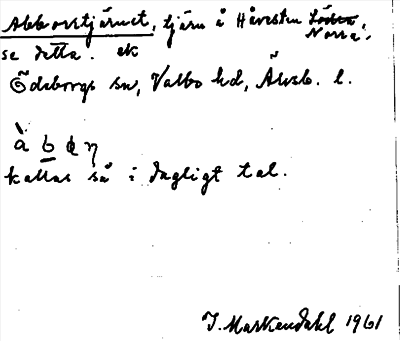 Abborrtjärnet, tjärn å Håvesten Södra,
Norra,
se detta. ek
Ödeborgs sn, Valbo hd, Älvsb. l.
à b ɷ η
kallas så i dagligt tal.
J. Markendahl 1961